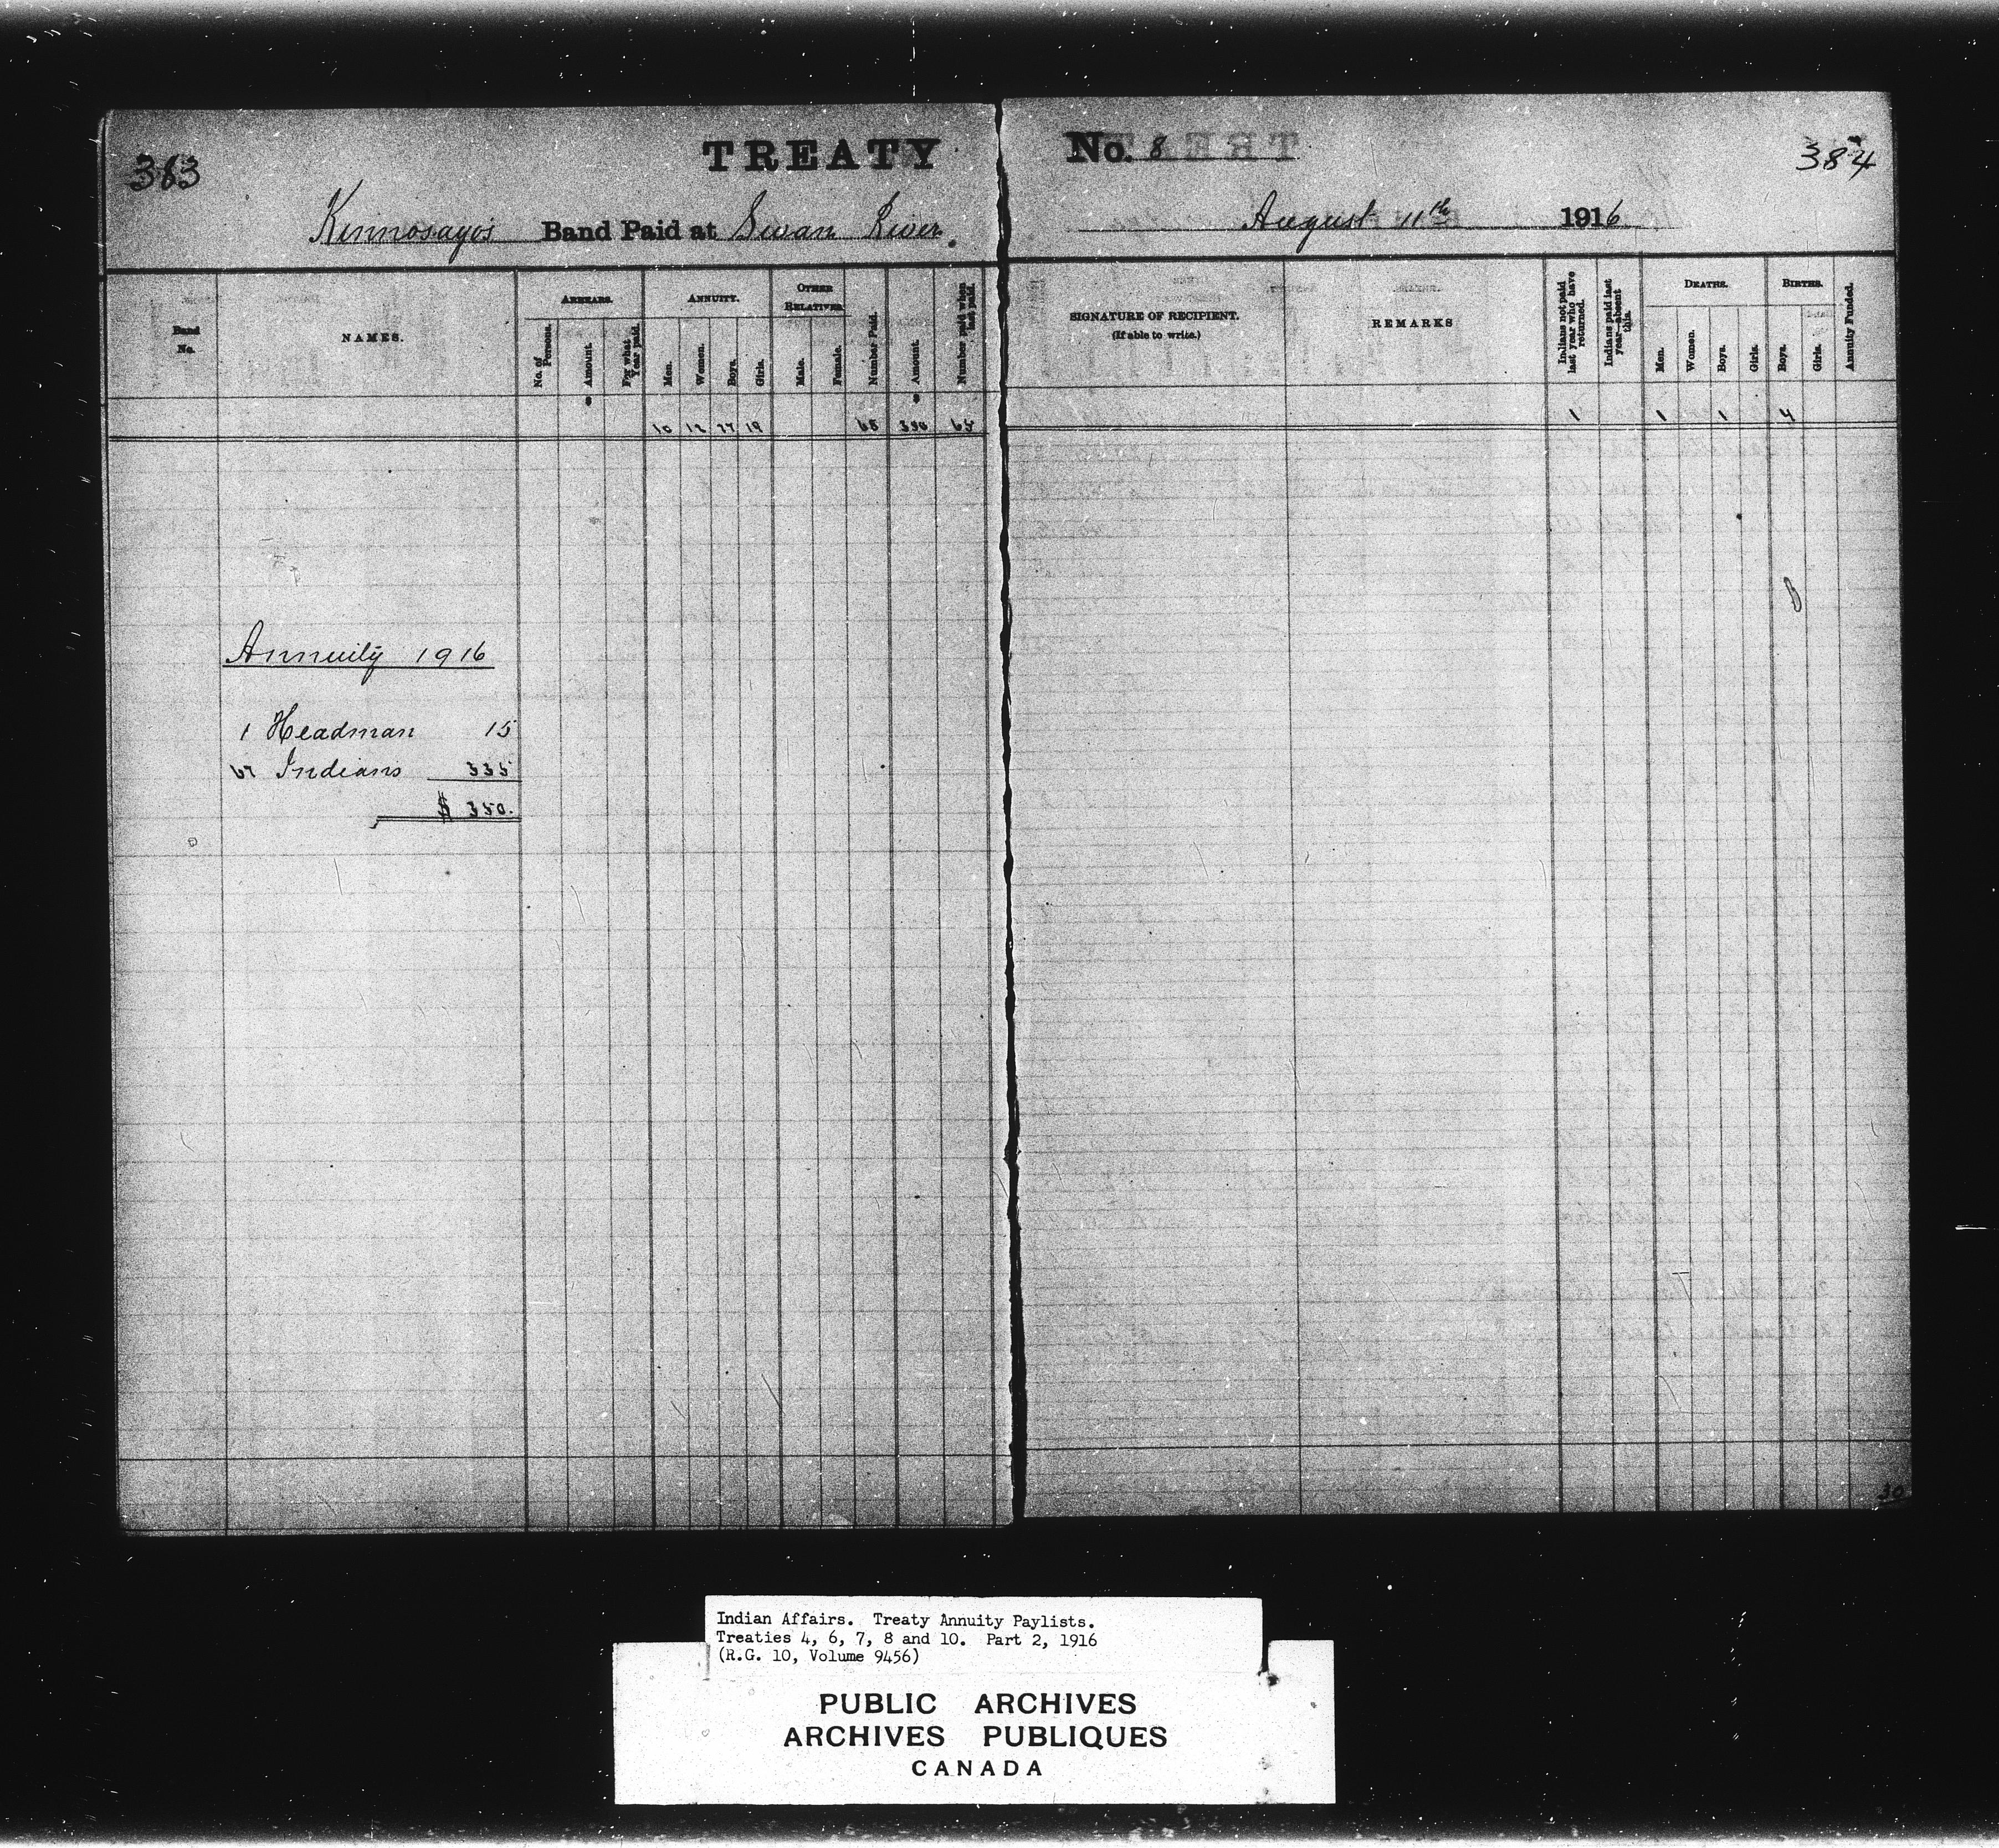 383
TREATY No. 8
384
Kinnosayo's Band Paid at Swan River.
August 11th 1916
Band No.
NAMES.
ARREARS.
No. of Persons.
Amount.
For what Year paid.
ANNUITY.
Men.
Women.
Boys.
Girls.
OTHER RELATIVES
Male.
Female.
Number Paid.
Amount.
Number paid when last paid.
SIGNATURE OF RECIPIENT.
(If able to write.)
REMARKS
Indians not paid last year who have returned.
Indians paid last year—absent this.
DEATHS.
Men.
Women.
Boys.
Girls.
BIRTHS.
Boys.
Girls.
Annuity Funded.
10 12 27 19 68 350 65 1 1 1 4
Annuity 1916
1 Headman 15
67 Indians 335
$ 350.
30
Indian Affairs. Treaty Annuity Paylists.
Treaties 4, 6, 7, 8 and 10. Part 2, 1916
(R.G. 10, Volume 9456)
PUBLIC ARCHIVES
ARCHIVES PUBLIQUES
CANADA